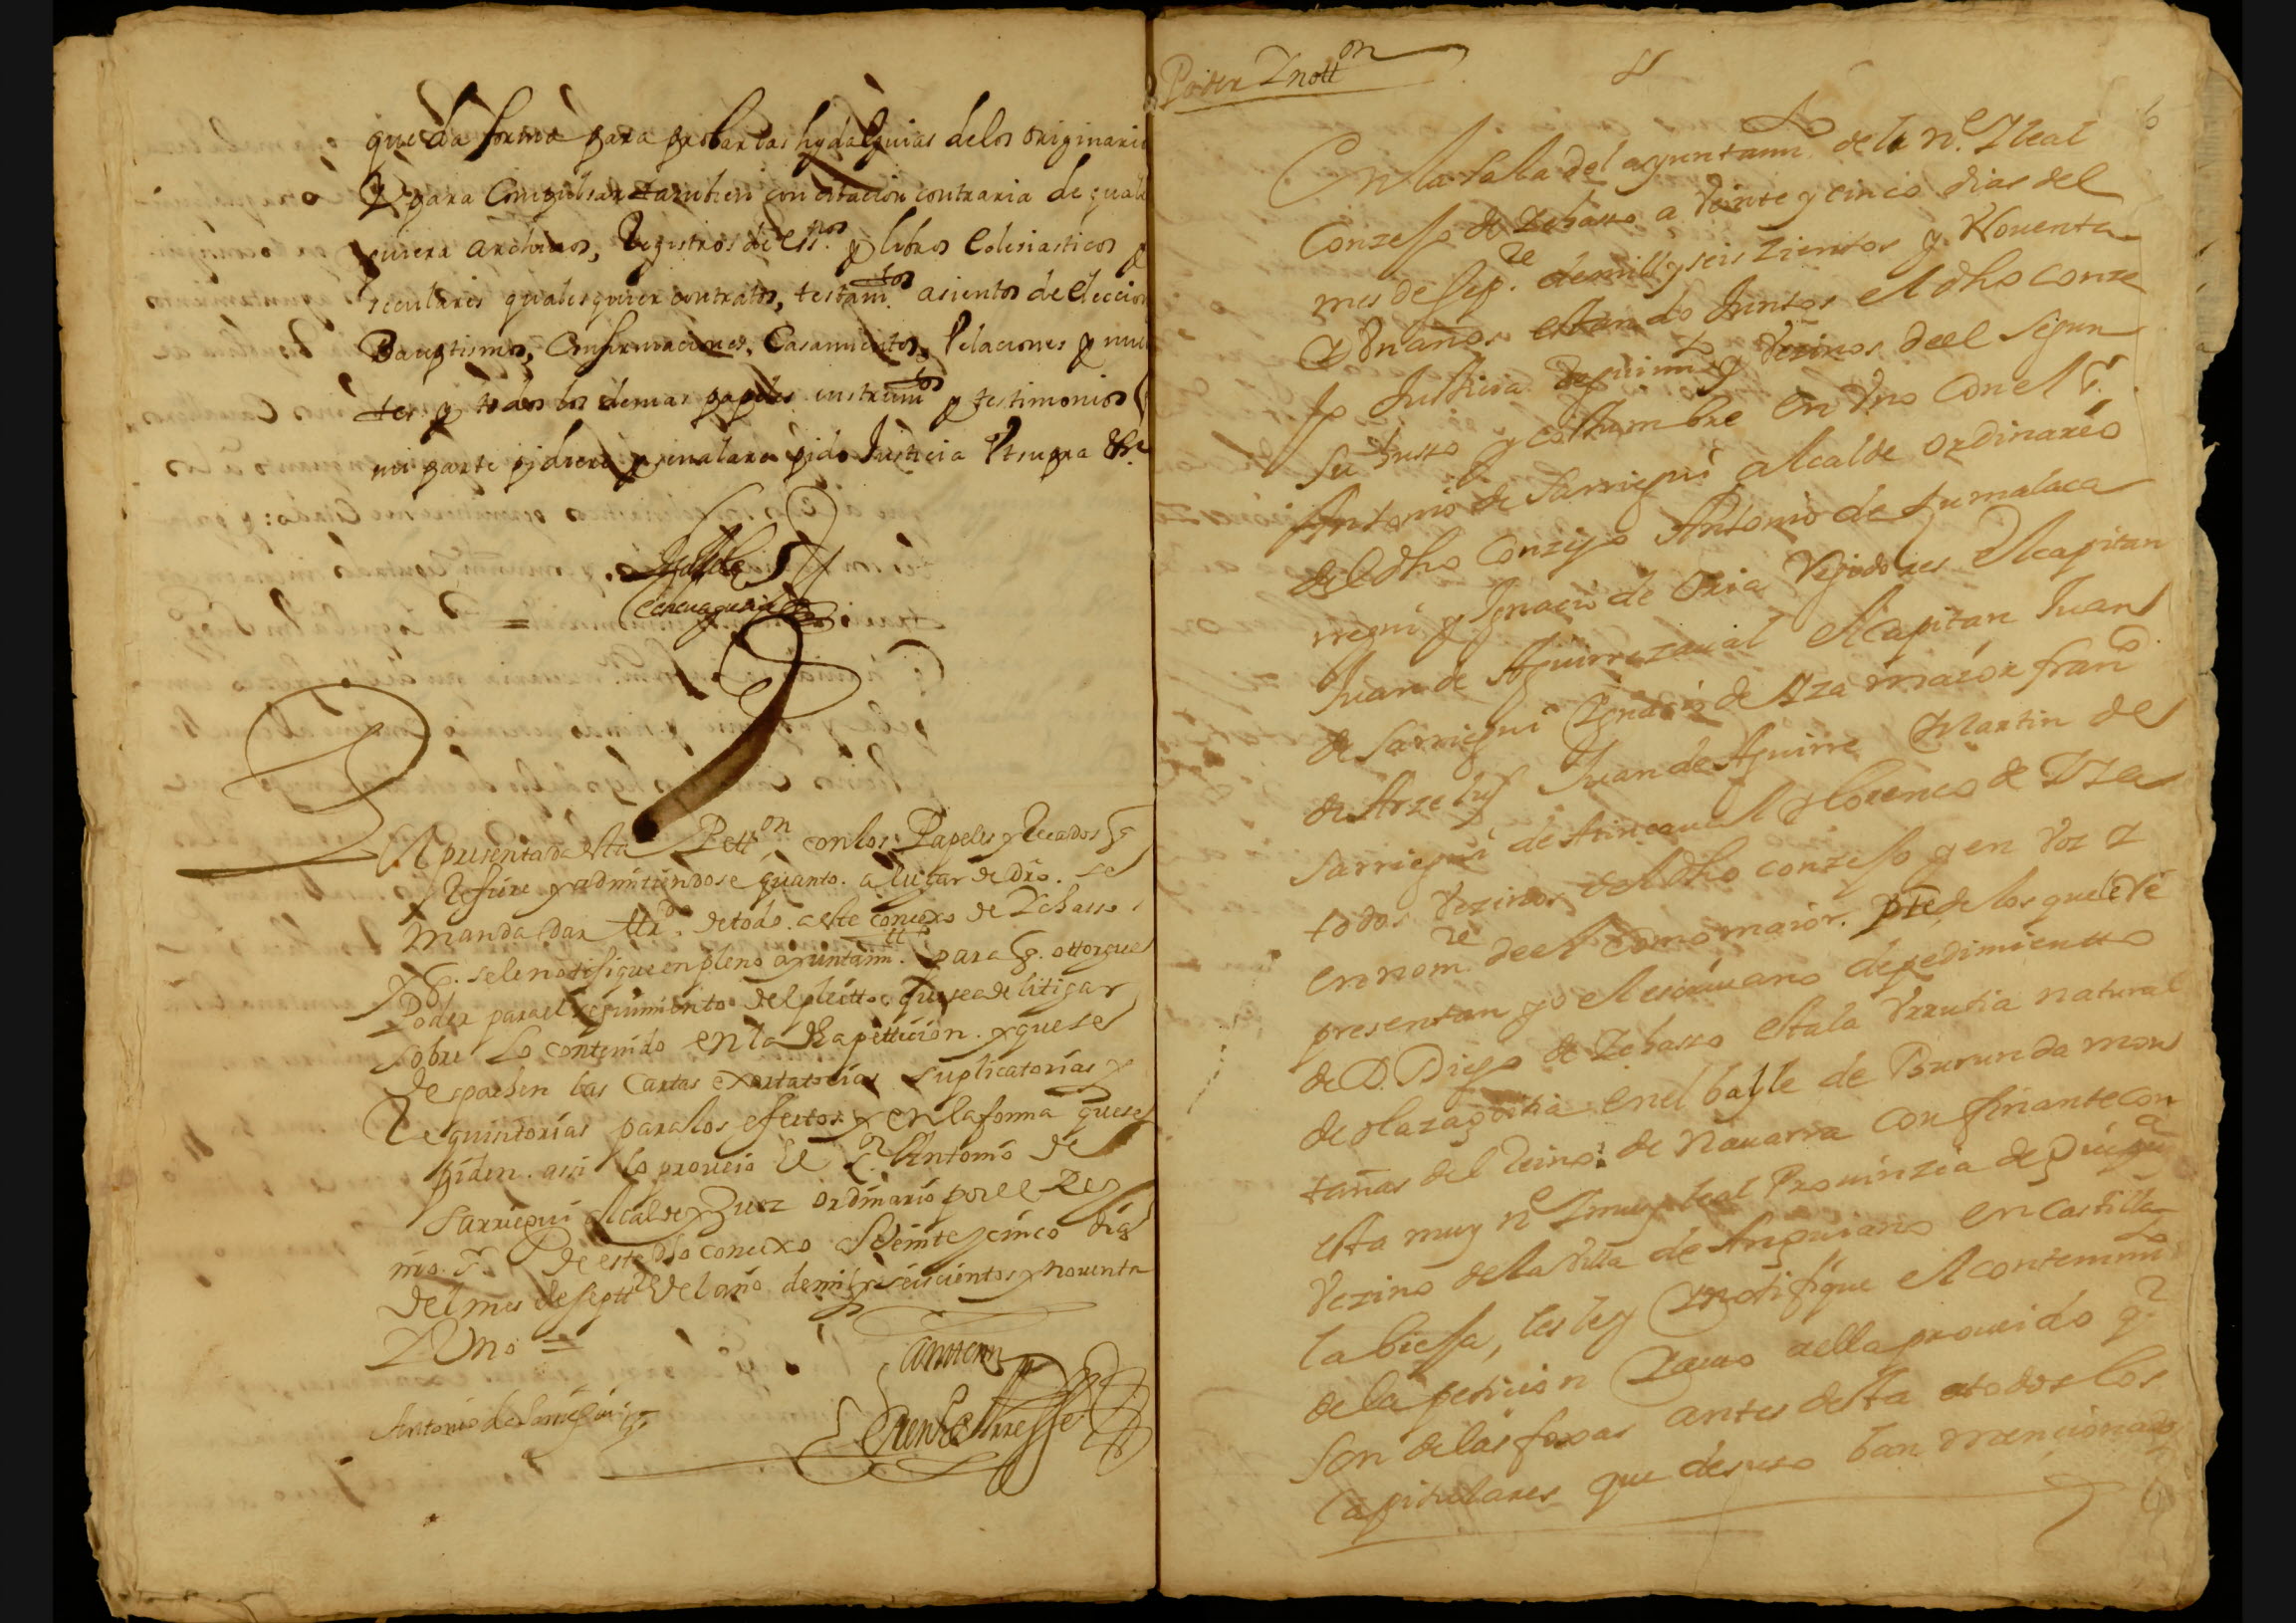 que da forma para probar las hydalguias de los originario
Y para Compulsar tambien con citacion contraria de quales
quiera archivos, Registros de essnos. y libros eclesiasticos y
seculares qualesquier contratos, testamtos. asientos de eleccion
Bauptismos, Confirmaciones, Casamientos, Velaciones y muer
tes. y todos los demas papeles instrumtos y testimonios q
mi parte pidiere y senalare pido Justicia Vt supra &a
Echeuerria
Presentada esta Petton. con los Papeles y Recados q
Refiere y admitiendose quanto. a lugar de dro. se
manda dar ttrdo. de todo. a este concexo de Ichasso
y q. se le notifique en pleno ayuntamtto. para q. ottorgue
Poder para el seguimiento del pleitto que sea de litigar
sobre Lo contenido en la dha petticion. y que se
despachen las Cartas exortatorias suplicatorias y
Requisitorias para los efectos y en la forma que se
piden. assi lo proueio el Sr. Antonio de
Sarriegui Alcalde y Juez ordinario por el Rey
nro. Sr. de este dho concexo a Veinte y cinco dias
del mes de septtre del año de mil y seiscientos y nouenta
Y Uno =
Antonio de Sarriegui
Antte mi
Poder Y notton
En la sala del ayuntamto de la Ne. Y leal
Conzejo de Ichasso a Veinte y cinco dias del
mes de Sepre. de mill y seis zientos y Nouenta
Y Un años estando Juntos el dho conze
jo Justicia Regimto y Vezinos deel segun
su Vsso y costumbre en Vno con el Sr.
Antonio de Sarriegui alcalde ordinario
del dho Conzejo Antonio de Jumalaca
rregui y Ignacio de Oria Regidores el capitan
Juan de Aguirrezaual el Capitan Juan
de Sarriegui Ignacio de Yza maior franco.
de Arzelus Juan de Aguirre Martin de
Sarriegui de Atineaual y Lorenco de Yza
todos Vezinos del dho conzejo y en Voz Y
en nomre deel como maior pte de los que le Re
presentan yo el escriuano de pedimientto
de D. Diego de Ichasso estala Vrrutia natural
de olazagoitia en el balle de Burunda mon
tañas del Reino de Nauarra confinante con
esta muy Ne Y muy leal Prouinzia de Guipua
Vezino de la Villa de Anguiano en Castilla
la bieja, les ley Y notifique el contenimto
de la peticion Y auto a ella proueido qe
son de las foxas antes desta a todos los
Capitulares que de suso ban mencionados